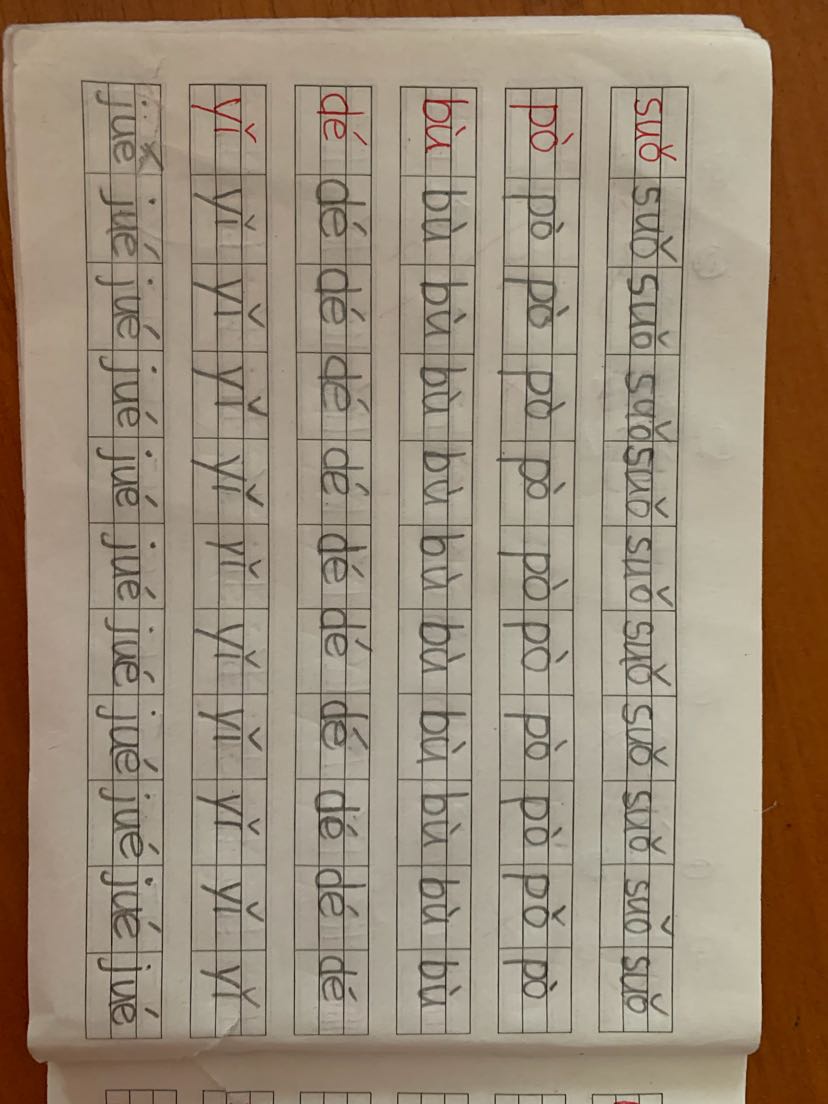 suǒ suǒ suǒ suǒ suǒ suǒ suǒ suǒ suǒ suǒ suǒ
pò pò pò pò pò pò pò pò pò pǒ pò
bù bù bù bù bù bù bù bù bù bù bù
dé dé dé dé dé dé dé dé dé dé dé
yǐ yǐ yǐ yǐ yǐ yǐ yǐ yǐ yǐ yǐ yǐ
jué jué jué jué jué jué jué jué jué jué